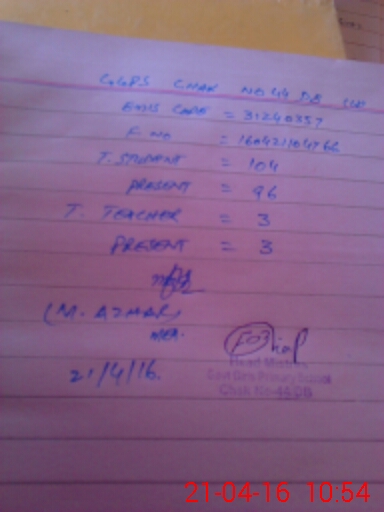 GGPS CHAK NO 44 DB
EMIS CODE = 31240357
F. NO = 160421104766
T. STUDENT = 104
PRESENT = 96
T. TEACHER = 3
PRESENT = 3
(M. AZHAR)
MEA.
21/4/16.
Head Mistress
Govt Girls Primary School
Chak No 44 DB
21-04-16 10:54